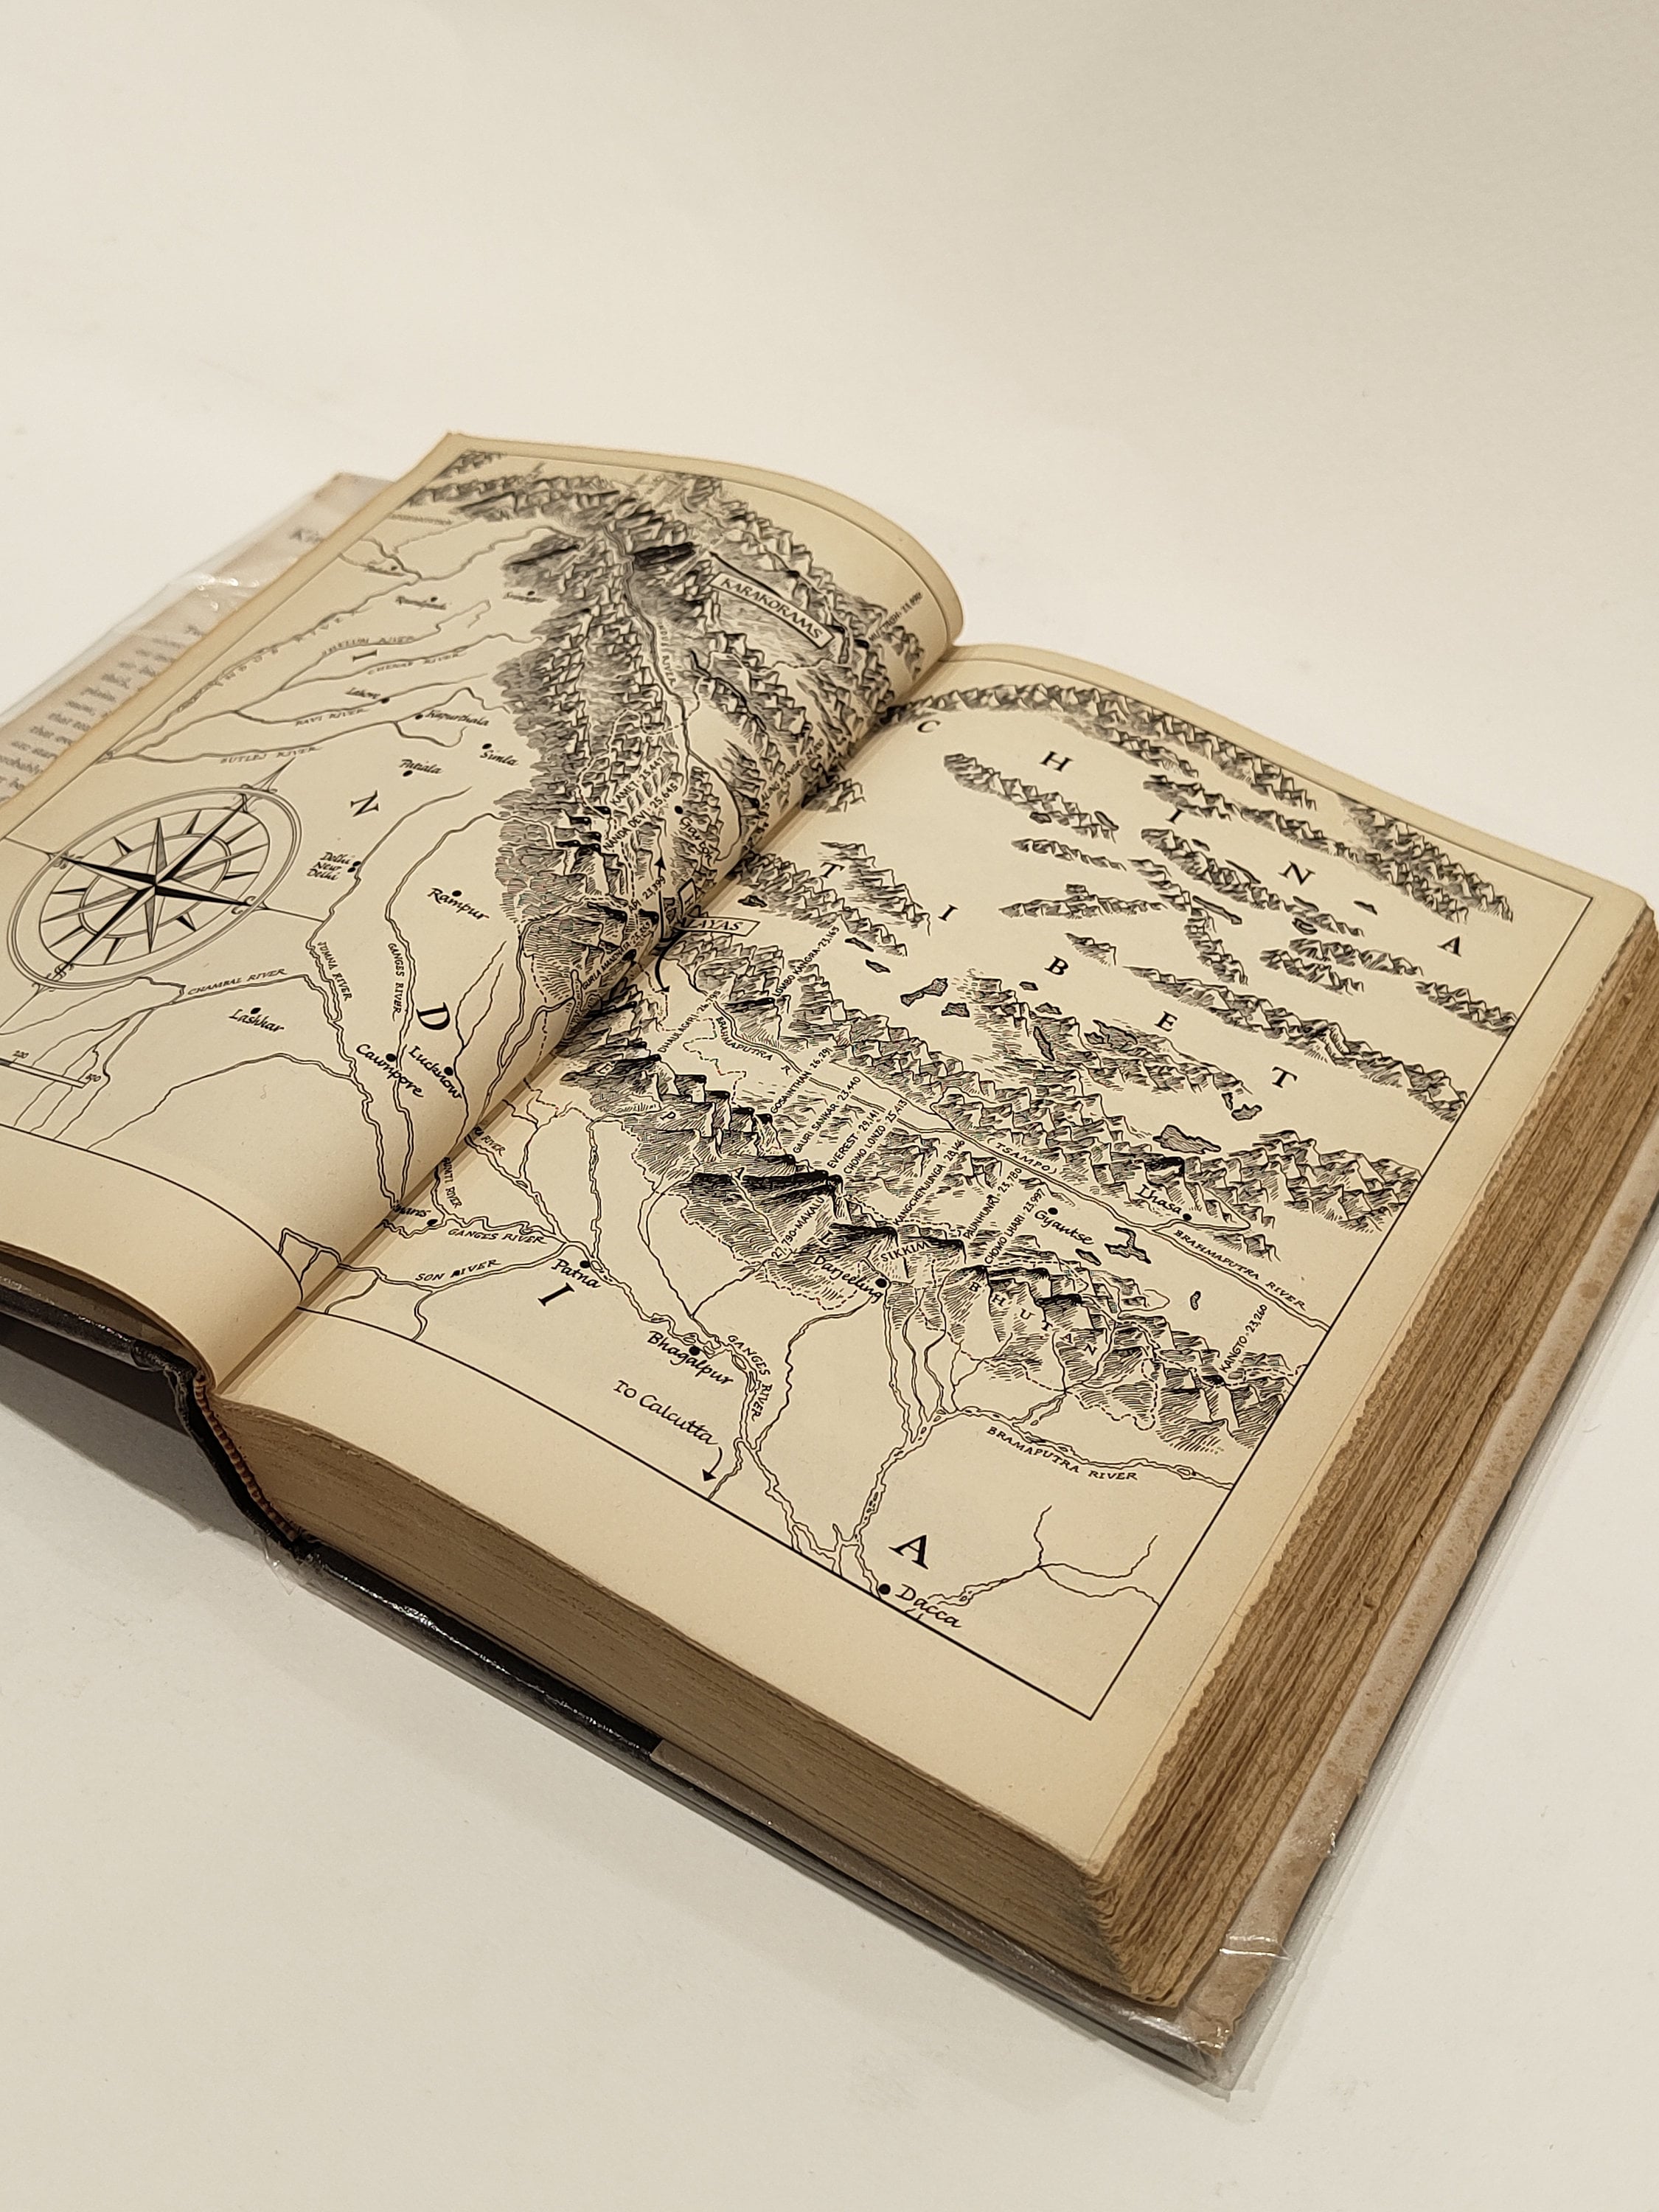 KARAKORAMS
INDUS RIVER
JHELUM RIVER
CHENAB RIVER
I
Lahore
RAVI RIVER
Kapurthala
SUTLEJ RIVER
Simla
Patiala
N
KAMET·25,447
NANDA DEVI·25,645
Delhi
New
Delhi
Rampur
JUMNA RIVER
GANGES RIVER
CHAMBAL RIVER
Lashkar
D
Cawnpore
Lucknow
AYAS
C
H
I
N
A
T
I
B
E
T
BRAHMAPUTRA R
GOSAINTHAN·26,291
GAURI SANKAR·23,440
EVEREST·29,141
CHOMO LONZO·25,413
KANGCHENJUNGA·28,146
PAUNHUNRI·23,780
CHOMO LHARI·23,997
27,790·MAKALU
(TSAMPO)
Lhasa
Gyantse
BRAHMAPUTRA RIVER
KANGTO·23,260
SIKKIM
Darjeeling
BHUTAN
GANGES RIVER
SON RIVER
Patna
I
Bhagalpur
GANGES RIVER
TO Calcutta
BRAMAPUTRA RIVER
A
Dacca